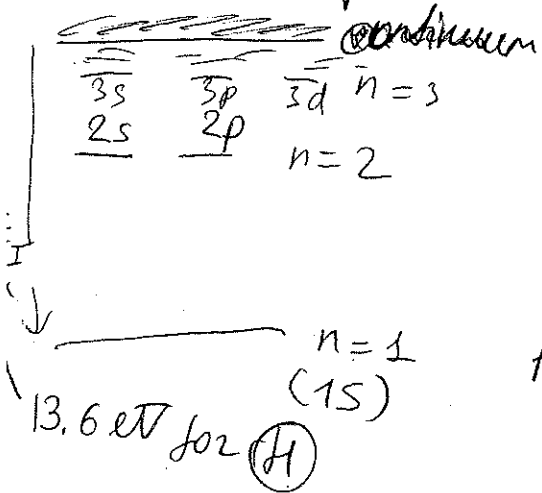 continuum
3s 3p 3d n = 3
2s 2p
n = 2
I
n = 1
(1S)
13.6 eV for H